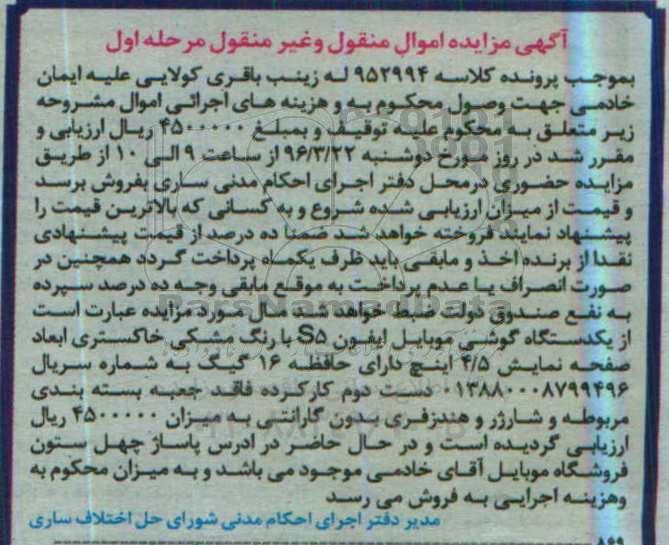 آگهی مزایده اموال منقول وغیر منقول مرحله اول
بموجب پرونده کلاسه ۹۵۲۹۹۴ له زینب باقری کولایی علیه ایمان
خادمی جهت وصول محکوم به و هزینه های اجرائی اموال مشروحه
زیر متعلق به محکوم علیه توقیف و بمبلغ ۴۵۰۰۰۰۰ ریال ارزیابی و
مقرر شد در روز مورخ دوشنبه ۹۶/۳/۲۲ از ساعت ۹ الی ۱۰ از طریق
مزایده حضوری درمحل دفتر اجرای احکام مدنی ساری بفروش برسد
و قیمت از میزان ارزیابی شده شروع و به کسانی که بالاترین قیمت را
پیشنهاد نمایند فروخته خواهد شد ضمنا ده درصد از قیمت پیشنهادی
نقدا از برنده اخذ و مابقی باید ظرف یکماه پرداخت گردد همچنین در
صورت انصراف یا عدم پرداخت به موقع مابقی وجه ده درصد سپرده
به نفع صندوق دولت ضبط خواهد شد مال مورد مزایده عبارت است
از یکدستگاه گوشی موبایل ایفون S۵ با رنگ مشکی خاکستری ابعاد
صفحه نمایش ۴/۵ اینچ دارای حافظه ۱۶ گیگ به شماره سریال
۰۱۳۸۸۰۰۰۸۷۹۹۴۹۶ دست دوم کارکرده فاقد جعبه بسته بندی
مربوطه و شارژر و هندزفری بدون گارانتی به میزان ۴۵۰۰۰۰۰ ریال
ارزیابی گردیده است و در حال حاضر در ادرس پاساژ چهل ستون
فروشگاه موبایل آقای خادمی موجود می باشد و به میزان محکوم به
وهزینه اجرایی به فروش می رسد
مدیر دفتر اجرای احکام مدنی شورای حل اختلاف ساری
۸۶۹
ParsNamadData